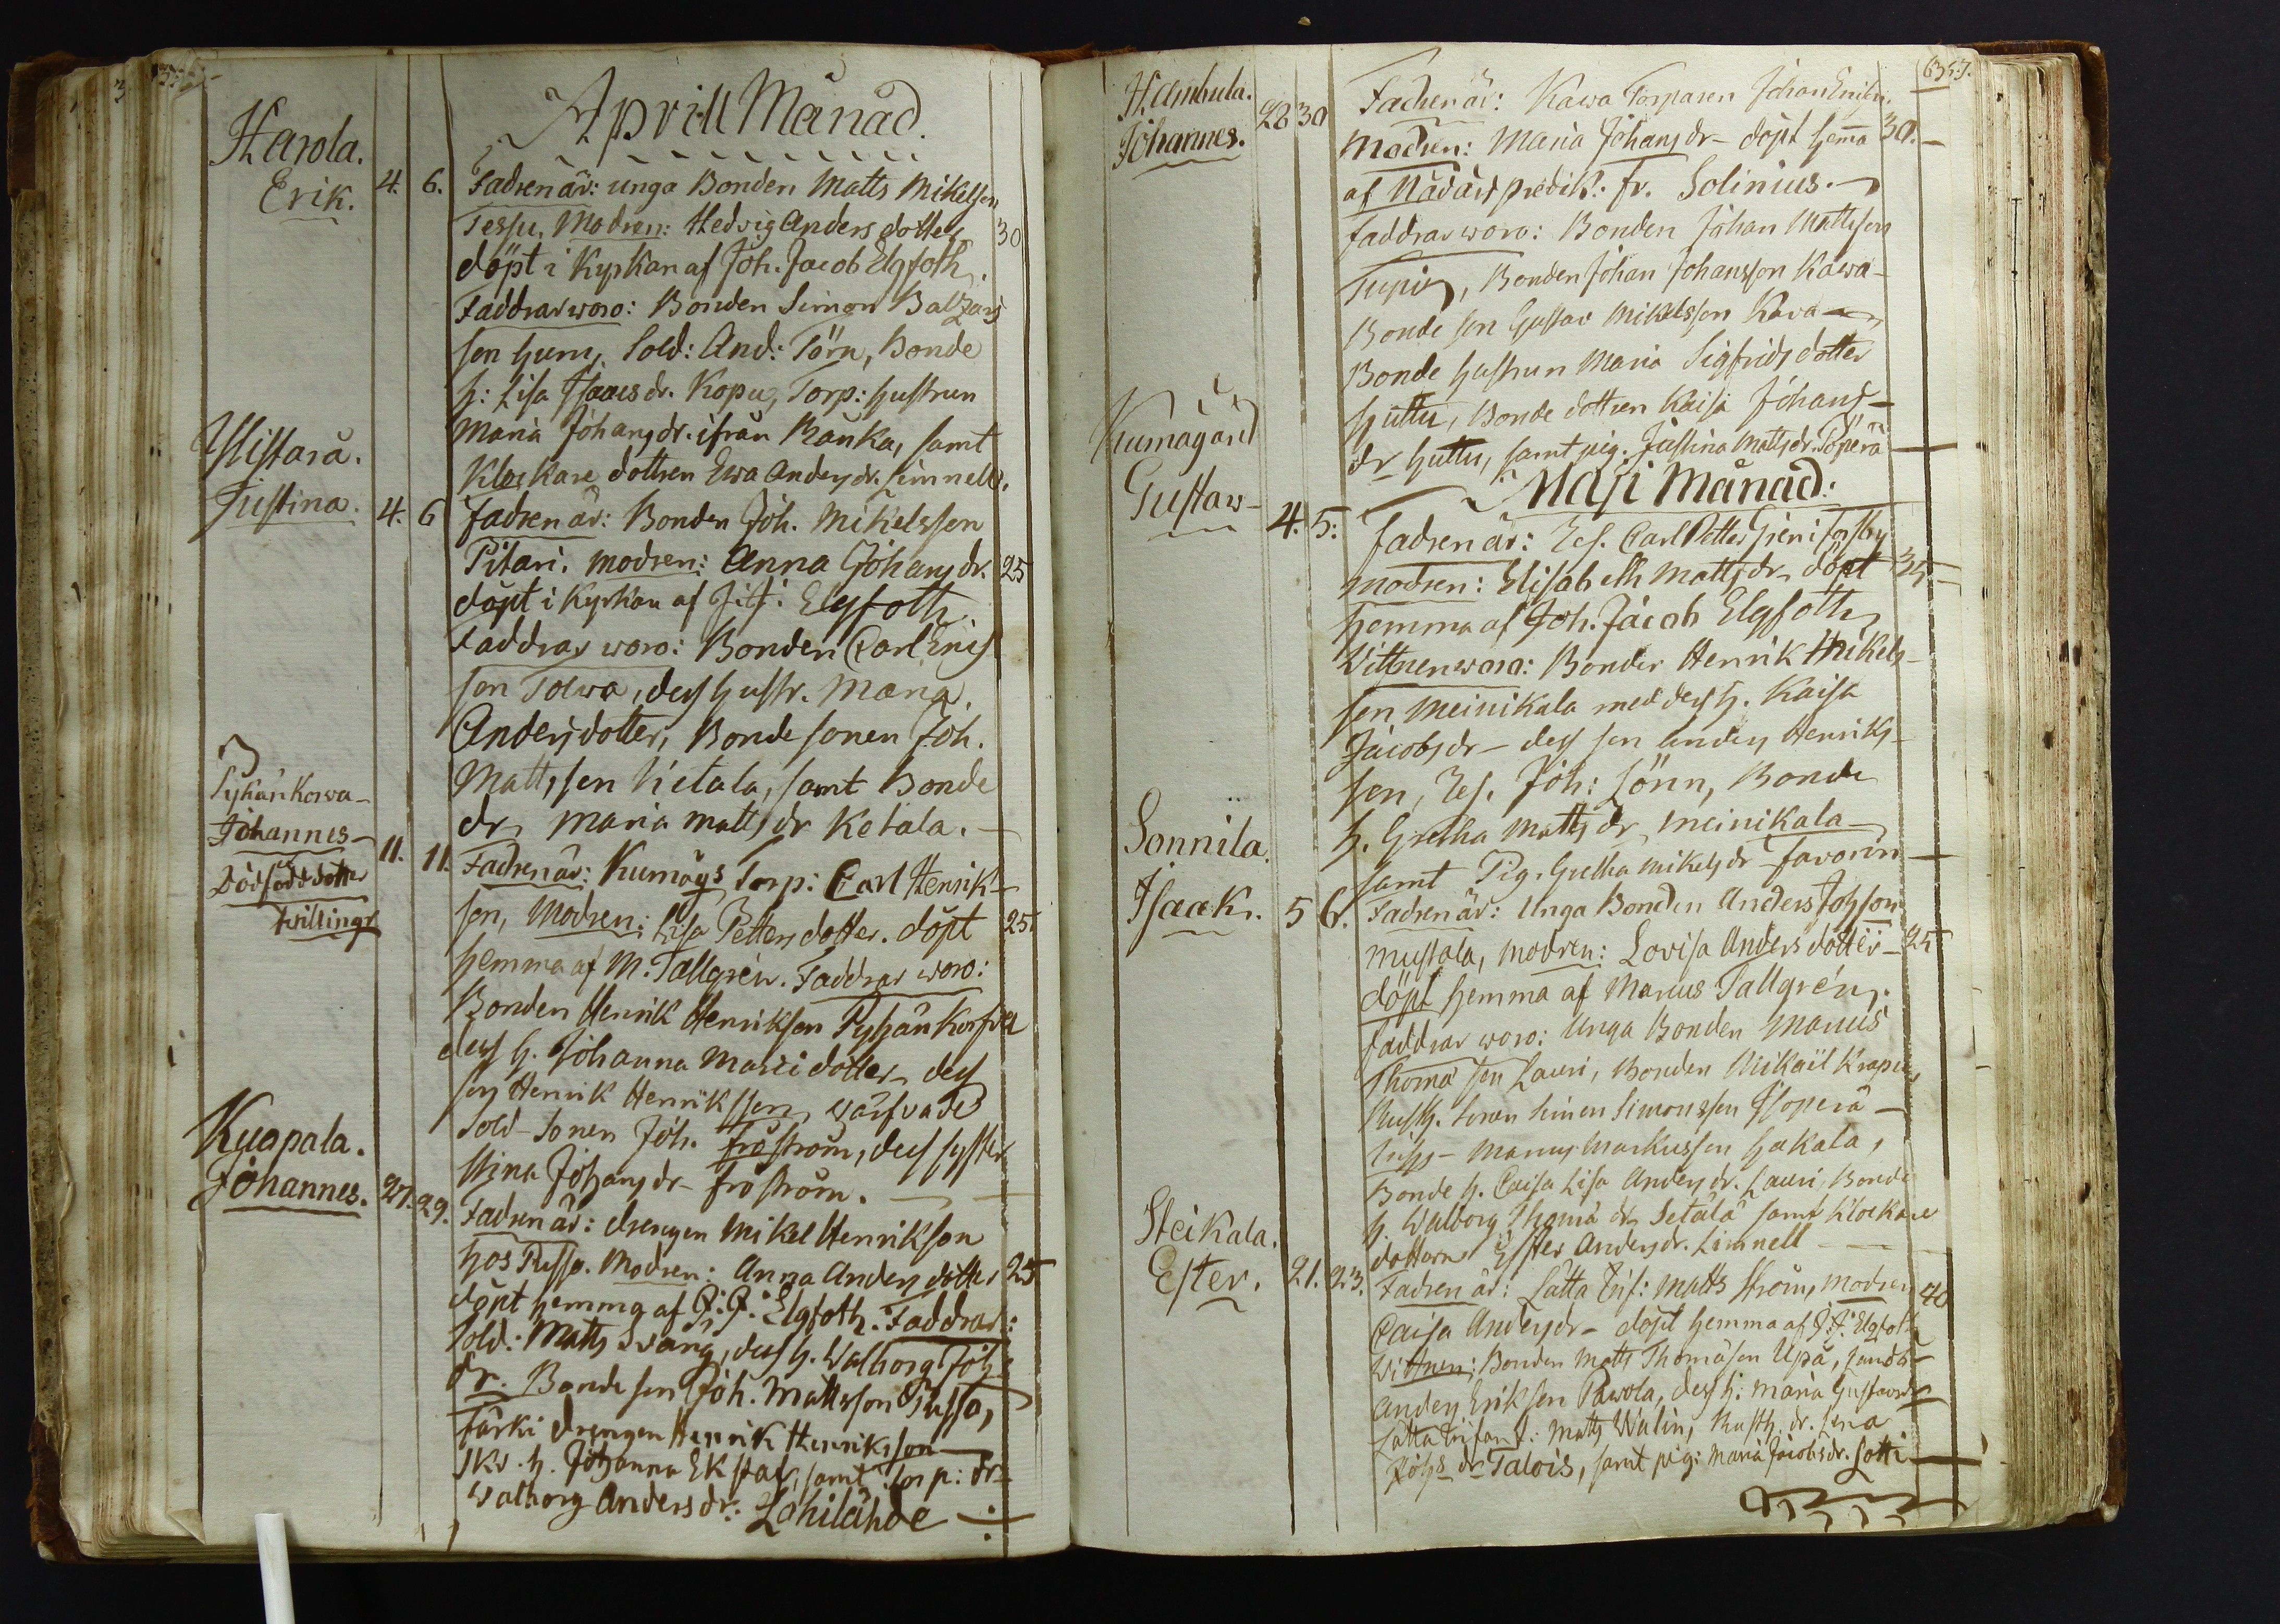 Aprill Månad.
Harola.
Erik. 4. 6. Fadren är: unga Bonden Matts Mikelsson
Tessu, Modren: Hedvig Anders dotter 30
döpt i Kyrkan af Joh. Jacob Elgfoth.
Faddrar woro: Bonden Simon Baltzars
son Sold: And: Törn, Bonde
h: Lisa Isaacs dr. Kopu, Torp: hustrun
Maria Johans dr. ifrån Rauka, samt
Klockare dottren Ewa Anders dr. Limnell.
Justina. 4. 6 Fadren är: Bonden Joh. Mikelsson
Pitari. modren: Anna Johans dr. 25
döpt i Kyrkan af Elgfoth
Faddrar woro: Bonden Carl Erics
son Tolva, dess hustr. Maria
Anders dotter, Bonde sonen Joh.
Matts son Ketala, samt Bonde
dr. Maria Matts dr Ketala.
Johannes
Dödfödd dotter
Tvillingr
11. 11. Fadren är: Kumögs Torp: Carl Henrik
son, Modren: Lisa Petters dotter. döpt 25
hemma af M. Tallgrén. Faddrar woro:
Bonden Henrik Henrikson
dess h. Johanna dotter, dess
son Henrik Henriksson, wärfvade
Sold Sonen Joh. Froström, dess syster
Stina Johans dr Froström.
Kuapala.
Johannes. 27. 29. Fadren är: drengen Mikel Henrikson
hos Pusso. Modren: Anna Anders dotter 25
döpt hemma af J: J: Elgfoth. Faddrar:
Sold: Matts Sväng, dess h. Walborg Joh
dr. Bonde son Joh. Mattsson Pusso,
Färki drengen Henrik Henriksson
h. Johanna Ekstaf, samt Torp: dr
Walborg Anders dr: Lahilähde
637.
Hambula.
Johannes. 28 30 Fadren är: Kawa Torparen Johan Ericsn.
Modren: Maria Johans dr döpt hema 30.
af Nådårs predik. Fr. Solinius.
faddrar woro: Bonden Johan Mattsson
Bonden Johan Johansson Kawa
Bonde son Gustav Mikelsson Kava
Bonde hustrun Maria Sigfrids dotter
Huttu, Bonde dottren Kaisa Johans
dr Huttu, samt pig. Justina Matts dr.
Maji Månad.
Kumägård
Gustaw 4. 5: Fadren är: Carl Petter Gren i Forsby
modren: Elisabeth Matts dr, döpt 35
hemma af Joh. Jacob Elgfoth
Vittnen wora: Bonden Henrik Mikels
son Meinikala med dess h. Kaisa
Jacobs dr dess son Anders Henriks
son, Joh: Lönn, Bonde
h. Gretha Matts dr, Meinikala
samt Pig. Gretha Mikels dr Favorin
Sonnila.
Isaak. 5 6. Fadren är: Unga Bonden Anders Johson
Mustala, modren: Lovisa Anders dotter 25
döpt hemma af Marcus Tallgrén.
faddrar woro: Unga Bonden Marcus
Thoma son Lauri, Bonden Mikail Krapu,
Rusth. Sonen Simon Simonsson
Markusson Hakala,
Bonde h. Caisa Lisa Anders dr. Lauri, Bonde
h. Walborg Thoma dr, Setälä samt Klockare
dottern Ester Anders dr. Limnell
Steikala.
Ester. 21. 23. Fadren är: Lätta Inf: Matts Ström, modren 40
Caisa Anders dr döpt hemma af J: J: Elgfoth
Vittnen: Bonden Matts Thomason Upa,
Anders Erikson Pawola, dess h: Maria Gustavsdr
Lätta Infant: Matts Walin, Rusth. dr. Lena
Johs dr Talois, samt pig: Maria Jacobsdr. Lotti